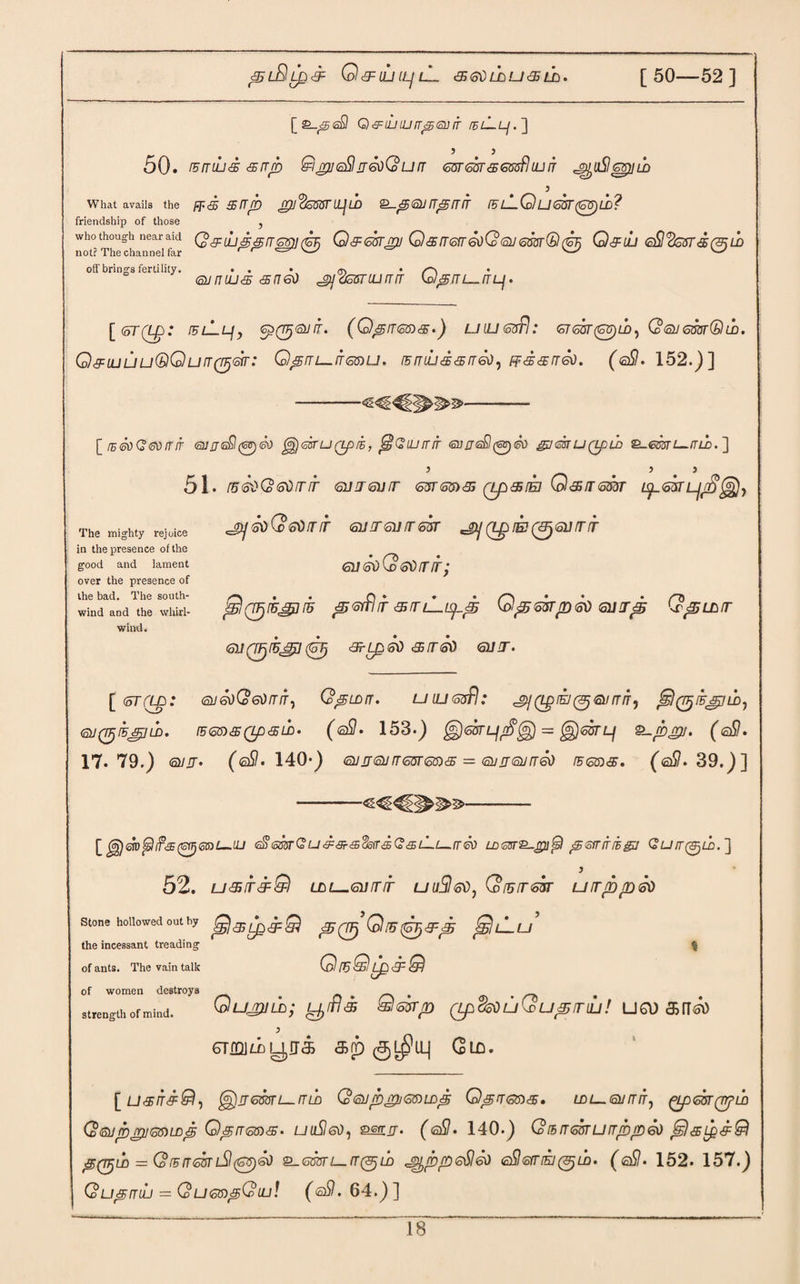 தமிழ்ச் செய்யுட் கலம்பகம். [ 50—52 ]
[ உதவி செய்யாதவர் நட்பு. ]
50. நாய்க் காற் சிறுவிரல்போ னன்கணியா ராயினும்
What avails the
friendship of those
who though near aid
not? The channel far
off brings fertility.
ஈக் காற் றுணையும் உதவாதார் நட்பென்னும்?
சேய்த்தானுஞ் சென்று கொளல்வேண்டுஞ் செய் விளைக்கும்
வாய்க் கால் அனையார் தொடர்பு.
[ எழு: நட்பு, ஒருவர். (தொகை.) பயனி: என்னும், வேண்டும்.
செயப்படுபொருள்: தொடர்பை. நாய்க்கால், ஈக்கால். (வி. 152.) ]
[ நல்லோர் வரவிஞல் இன்பமும், தீயோர் வரவிஞல் துன்பமும் உண்டாம். ]
51. நல்லோர் வரவா னகைமுகங் கொண் டின்புறீஇ,
The mighty rejoice
in the presence of the
good and lament
over the presence of
the bad. The south-
wind and the whirl-
wind.
அல்லோர் வரவான் அழுங்குவார்
வல்லோர்;
திருந்துந் தளிர் காட்டித் தென்றல் வரத் தேமா
வருந்துஞ் சுழல் கால் வர.
[ எழு: வல்லோர், தேமா. பயனி: அழுங்குவார், திருந்தும்,
வருந்தும். நகைமுகம். (வி. 153.) இன்புறீஇ = இன்பு உற்று. (வி.
17. 79.) வர. (வி. 140.) வரவானகை = வரவால் நகை. (வி. 39.) ]
[ இஸ்திரீகளுடைய வீண்பேச்சுகளைக்கேட்டால் மனஉறுதி தளர்ந்து போகும். ]
52. பகர்ச்சி மடவார் பயில், நோன் பாற்றல்
Stone hollowed out by
the incessant treading
of ants. The vain talk
of women destroys
strength of mind.
திகழ்ச்சி தரு நெஞ்சத் திட்ப
நெகிழ்ச்சி
பெறும்; பூரிக் கின்ற முலைப்பேதாய்! பல கால்
எறும்பூரக் கற் குழியு மே.
[ பகர்ச்சி, இரண்டாம் வேற்றுமைத் தொகை. மடவார், மூன்றாம்
வேற்றுமைத் தொகை. பயில், உளர. (வி. 140.) நோன்பாற்றல் திகழ்ச்சி
தரும் = நோன்பினால் உண்டாகும் ஆற்றலில் விளங்கும். (வி. 152. 157.)
பேதாய் = பேதையே! (வி. 64.) ]
18